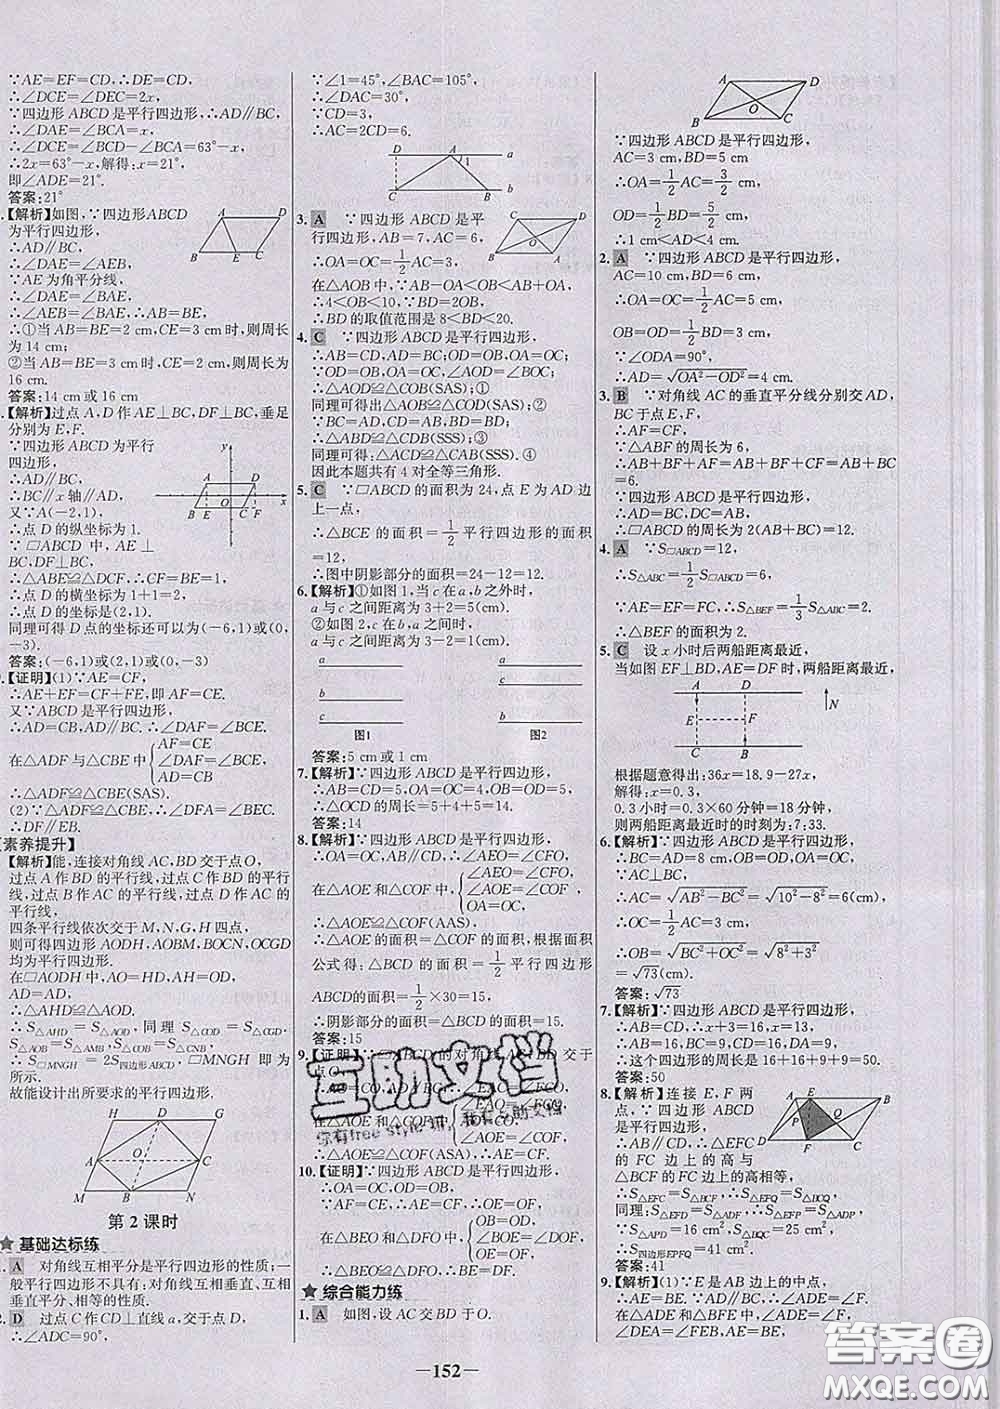 ∵AE=EF=CD,∴DE=CD,
∴∠DCE=∠DEC=2x,
∵四边形ABCD是平行四边形,∴AD∥BC,
∴∠DAE=∠BCA=x,
∴∠DCE=∠BCD-∠BCA=63°-x,
∴2x=63°-x,解得:x=21°,
即∠ADE=21°.
答案:21°
【解析】如图,∵四边形ABCD
为平行四边形,
∴AD∥BC,
∴∠DAE=∠AEB,
∵AE为角平分线,
∴∠DAE=∠BAE,
∴∠AEB=∠BAE,∴AB=BE,
∴①当AB=BE=2 cm,CE=3 cm时,则周长
为14 cm;
②当AB=BE=3 cm时,CE=2 cm,则周长为
16 cm.
答案:14 cm或16 cm
【解析】过点A,D作AE⊥BC,DF⊥BC,垂足
分别为E,F.
∵四边形ABCD为平行
四边形,
∴AD∥BC,
∴BC∥x轴∥AD,
又∵A(-2,1),
∴点D的纵坐标为1.
∵▱ABCD中,AE⊥
BC,DF⊥BC,
∴△ABE≌△DCF,∴CF=BE=1,
∴点D的横坐标为1+1=2,
∴点D的坐标是(2,1).
同理可得D点的坐标还可以为(-6,1)或(0,
-3).
答案:(-6,1)或(2,1)或(0,-3)
【证明】(1)∵AE=CF,
∴AE+EF=CF+FE,即AF=CE.
又∵ABCD是平行四边形,
∴AD=CB,AD∥BC.∴∠DAF=∠BCE.
在△ADF与△CBE中{AF=CE
∠DAF=∠BCE,
AD=CB
∴△ADF≌△CBE(SAS).
(2)∵△ADF≌△CBE,∴∠DFA=∠BEC.
∴DF∥EB.
【素养提升】
【解析】能,连接对角线AC,BD交于点O,
过点A作BD的平行线,过点C作BD的平
行线,过点B作AC的平行线,过点D作AC的
平行线,
四条平行线依次交于M,N,G,H四点,
则可得四边形AODH,AOBM,BOCN,OCGD
均为平行四边形.
在▱AODH中,AO=HD,AH=OD,
AD=AD,
∴△AHD≌△AOD.
∴S△AHD=S△AOD,同理S△COD=S△CGD,
S△AOB=S△AMB,S△COB=S△CNB,
∴S▱MNGH=2S四边形ABCD,▱MNGH即为
所示.
故能设计出所要求的平行四边形.
H D G
A O C
M B N
第2课时
★基础达标练
1. A 对角线互相平分是平行四边形的性质;一
般平行四边形不具有:对角线互相垂直、互相
垂直平分、相等的性质.
2. D 过点C作CD⊥直线a,交于点D,
∴∠ADC=90°,
∵∠1=45°,∠BAC=105°,
∴∠DAC=30°,
∵CD=3,
∴AC=2CD=6.
D A a
1
C B b
3. A ∵四边形ABCD是平
行四边形,AB=7,AC=6,
∴OA=OC=1/2AC=3,
在△AOB中,∵AB-OA<OB<AB+OA,
∴4<OB<10,∵BD=2OB,
∴BD的取值范围是8<BD<20.
4. C ∵四边形ABCD是平行四边形,
∴AB=CD,AD=BC;OD=OB,OA=OC;
∵OD=OB,OA=OC,∠AOD=∠BOC;
∴△AOD≌△COB(SAS);①
同理可得出△AOB≌△COD(SAS);②
∵BC=AD,CD=AB,BD=BD;
∴△ABD≌△CDB(SSS);③
同理可得:△ACD≌△CAB(SSS).④
因此本题共有4对全等三角形.
5. C ∵▱ABCD的面积为24,点E为AD边
上一点,
∴△BCE的面积=1/2平行四边形的面积
=12,
∴图中阴影部分的面积=24-12=12.
6.【解析】①如图1,当c在a,b之外时,
a与c之间距离为3+2=5(cm).
②如图2,c在b,a之间时,
a与c之间距离为3-2=1(cm).
a a
b c
c b
图1 图2
答案:5 cm或1 cm
7.【解析】∵四边形ABCD是平行四边形,
∴AB=CD=5,OA=OC=4,OB=OD=5,
∴△OCD的周长=5+4+5=14,
答案:14
8.【解析】∵四边形ABCD是平行四边形,
∴OA=OC,AD∥BC,∴∠AEO=∠CFO,
在△AOE和△COF中,{∠AEO=∠CFO,
∠AOE=∠COF,
OA=OC,
∴△AOE≌△COF(AAS),
∴△AOE的面积=△COF的面积,根据面积
公式得:△BCD的面积=1/2平行四边形
ABCD的面积=1/2×30=15,
∴阴影部分的面积=△BCD的面积=15.
答案:15
9.【证明】∵▱ABCD的对角线AC,BD交于
点O
∠AOE=∠COF,
∴△AOE≌△COF(ASA),∴OE=OF.
10.【证明】∵四边形ABCD是平行四边形,
∴OA=OC,OB=OD,
∵AF=CE,∴AE=CF,∴OE=OF,
在△BEO和△DFO中,{OB=OD,
∠BOE=∠DOF,
OE=OF,
∴△BEO≌△DFO,∴BE=DF.
★综合能力练
1. A 如图,设AC交BD于O.
∵四边形ABCD是平行四边形,
AC=3 cm,BD=5 cm,
∴OA=1/2AC=3/2 cm,
OD=1/2BD=5/2 cm,
∴1 cm<AD<4 cm.
2. A ∵四边形ABCD是平行四边形,
AC=10 cm,BD=6 cm,
∴OA=OC=1/2AC=5 cm,
OB=OD=1/2BD=3 cm,
∵∠ODA=90°,
∴AD=√(OA²-OD²)=4 cm.
3. B ∵对角线AC的垂直平分线分别交AD,
BC于点E,F,
∴AF=CF,
∵△ABF的周长为6,
∴AB+BF+AF=AB+BF+CF=AB+BC
=6.
∵四边形ABCD是平行四边形,
∴AD=BC,AB=CD,
∴▱ABCD的周长为2(AB+BC)=12.
4. A ∵S▱ABCD=12,
∴S△ABC=1/2S▱ABCD=6,
∵AE=EF=FC,∴S△BEF=1/3S△ABC,
∴△BEF的面积为2.
5. C 设x小时后两船距离最近,
当如图EF⊥BD,AE=DF时,两船距离最近,
A D
N
E F
C B
根据题意得出:36x=18.9-27x,
解得:x=0.3,
0.3小时=0.3×60分钟=18分钟,
则两船距离最近时的时刻为:7:33.
6.【解析】∵四边形ABCD是平行四边形,
∴BC=AD=8 cm,OA=OC,
∵AC⊥BC,
∴AC=√(AB²-BC²)=√(10²-8²)=6(cm),
∴OC=1/2AC=3 cm,
∴OB=√(BC²+OC²)=√(8²+3²)
=√73(cm).
答案:√73
7.【解析】∵四边形ABCD是平行四边形,
∴AB=CD,AD=BC,
∴AB=16,BC=9,CD=16,DA=9,
∴这个四边形的周长是16+16+9+9=50.
答案:50
8.【解析】连接E,F两
点,∵四边形ABCD
是平行四边形,
∴AB∥CD,∴△EFC
的FC边上的高与
△BCF的FC边上的高相等,
∴S△EFC=S△BCF,∴S△EFQ=S△BCQ,
同理:S△EFD=S△ADF,∴S△EFP=S△ADP,
∵S△APD=16 cm²,S△BQC=25 cm²,
∴S四边形EPFQ=41 cm².
答案:41
9.【解析】(1)∵E是AB边上的中点,
∴AE=BE,∵AD∥BC,∴∠ADE=∠F.
在△ADE和△BFE中,∠ADE=∠F,
∠DEA=∠FEB,AE=BE,
—152—
互助文档
答案圈
MXQE.COM